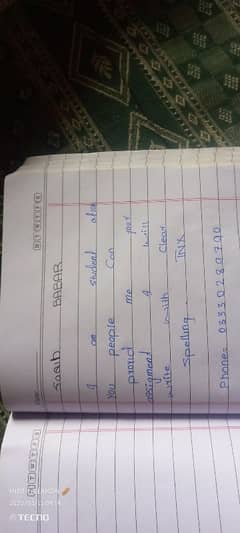 SAQIB BABAR
I am student also
You people Can
provid me your
assigment I will
write with Clear
Spelling TNX
Phone= 03330280700
TECNO